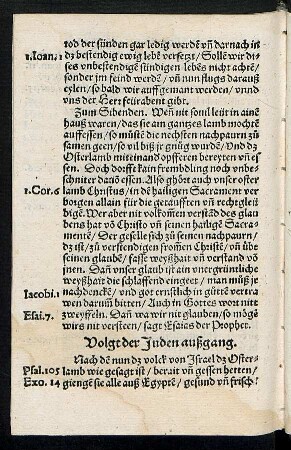 tod der sünden gar ledig werdē vñ darnach in
1.Ioan.1 dz bestendig ewig lebē versetzt / Sollē wir di-
ses vnbestendigē sündigen lebēs nicht achtē/
sonder jm feind werdē / vñ nun flugs darauß
eylen / so bald wir auffgemant werden / vnnd
vns der Herr feirabent gibt.
Zum Sibenden. Weñ nit souil leüt in ainē
hauß waren / das sie ain gantzes lamb mochtē
auffessen / so müstē die nechsten nachpaurn zu
samen geen / so vil biß jr gnůg wurdē / Vnd dz
Osterlamb miteinand opfferen bereyten vñ es-
sen. Doch dorfft kain frembdling noch vnbe-
schniter darañ essen. Also ghört auch vnser oster
1.Cor.6 lamb Christus / in dē hailigen Sacrament ver
borgen allain für die getaufften vñ rechtgleit
bige. Wer aber nit volkomen verstād des glau
bens hat vō Christo vñ seinen hailigē Sacra-
mentē / Der geselle sich zu seinen nachpaurn /
dz ist / zu verstendigen fromen Christē / vñ übe
sein glauben / fasse weyßhait vñ verstand võ
jnen. Dañ vnser glaub ist ain vnergrüntliche
weyßhait die schlaffend eingeet / man müß je
Iacobi.1 nachdencken / vnd got ernstlich in gůttē vertra
wen darumb bitten / Auch in Gottes wort nitt
Esai.7. zweyffeln. Dañ wa wir nit glauben / so mögē
wirs nit versteen / sagt Esaias der Prophet.
Volgt der Juden außgang.
Nach dē nun dz volck von Israel dz Oster-
Psal.105 lamb wie gesagt ist / berait vñ gessen hetten /
Exo. 14 giengē sie alle auß Egyptē / gesund vñ frisch /